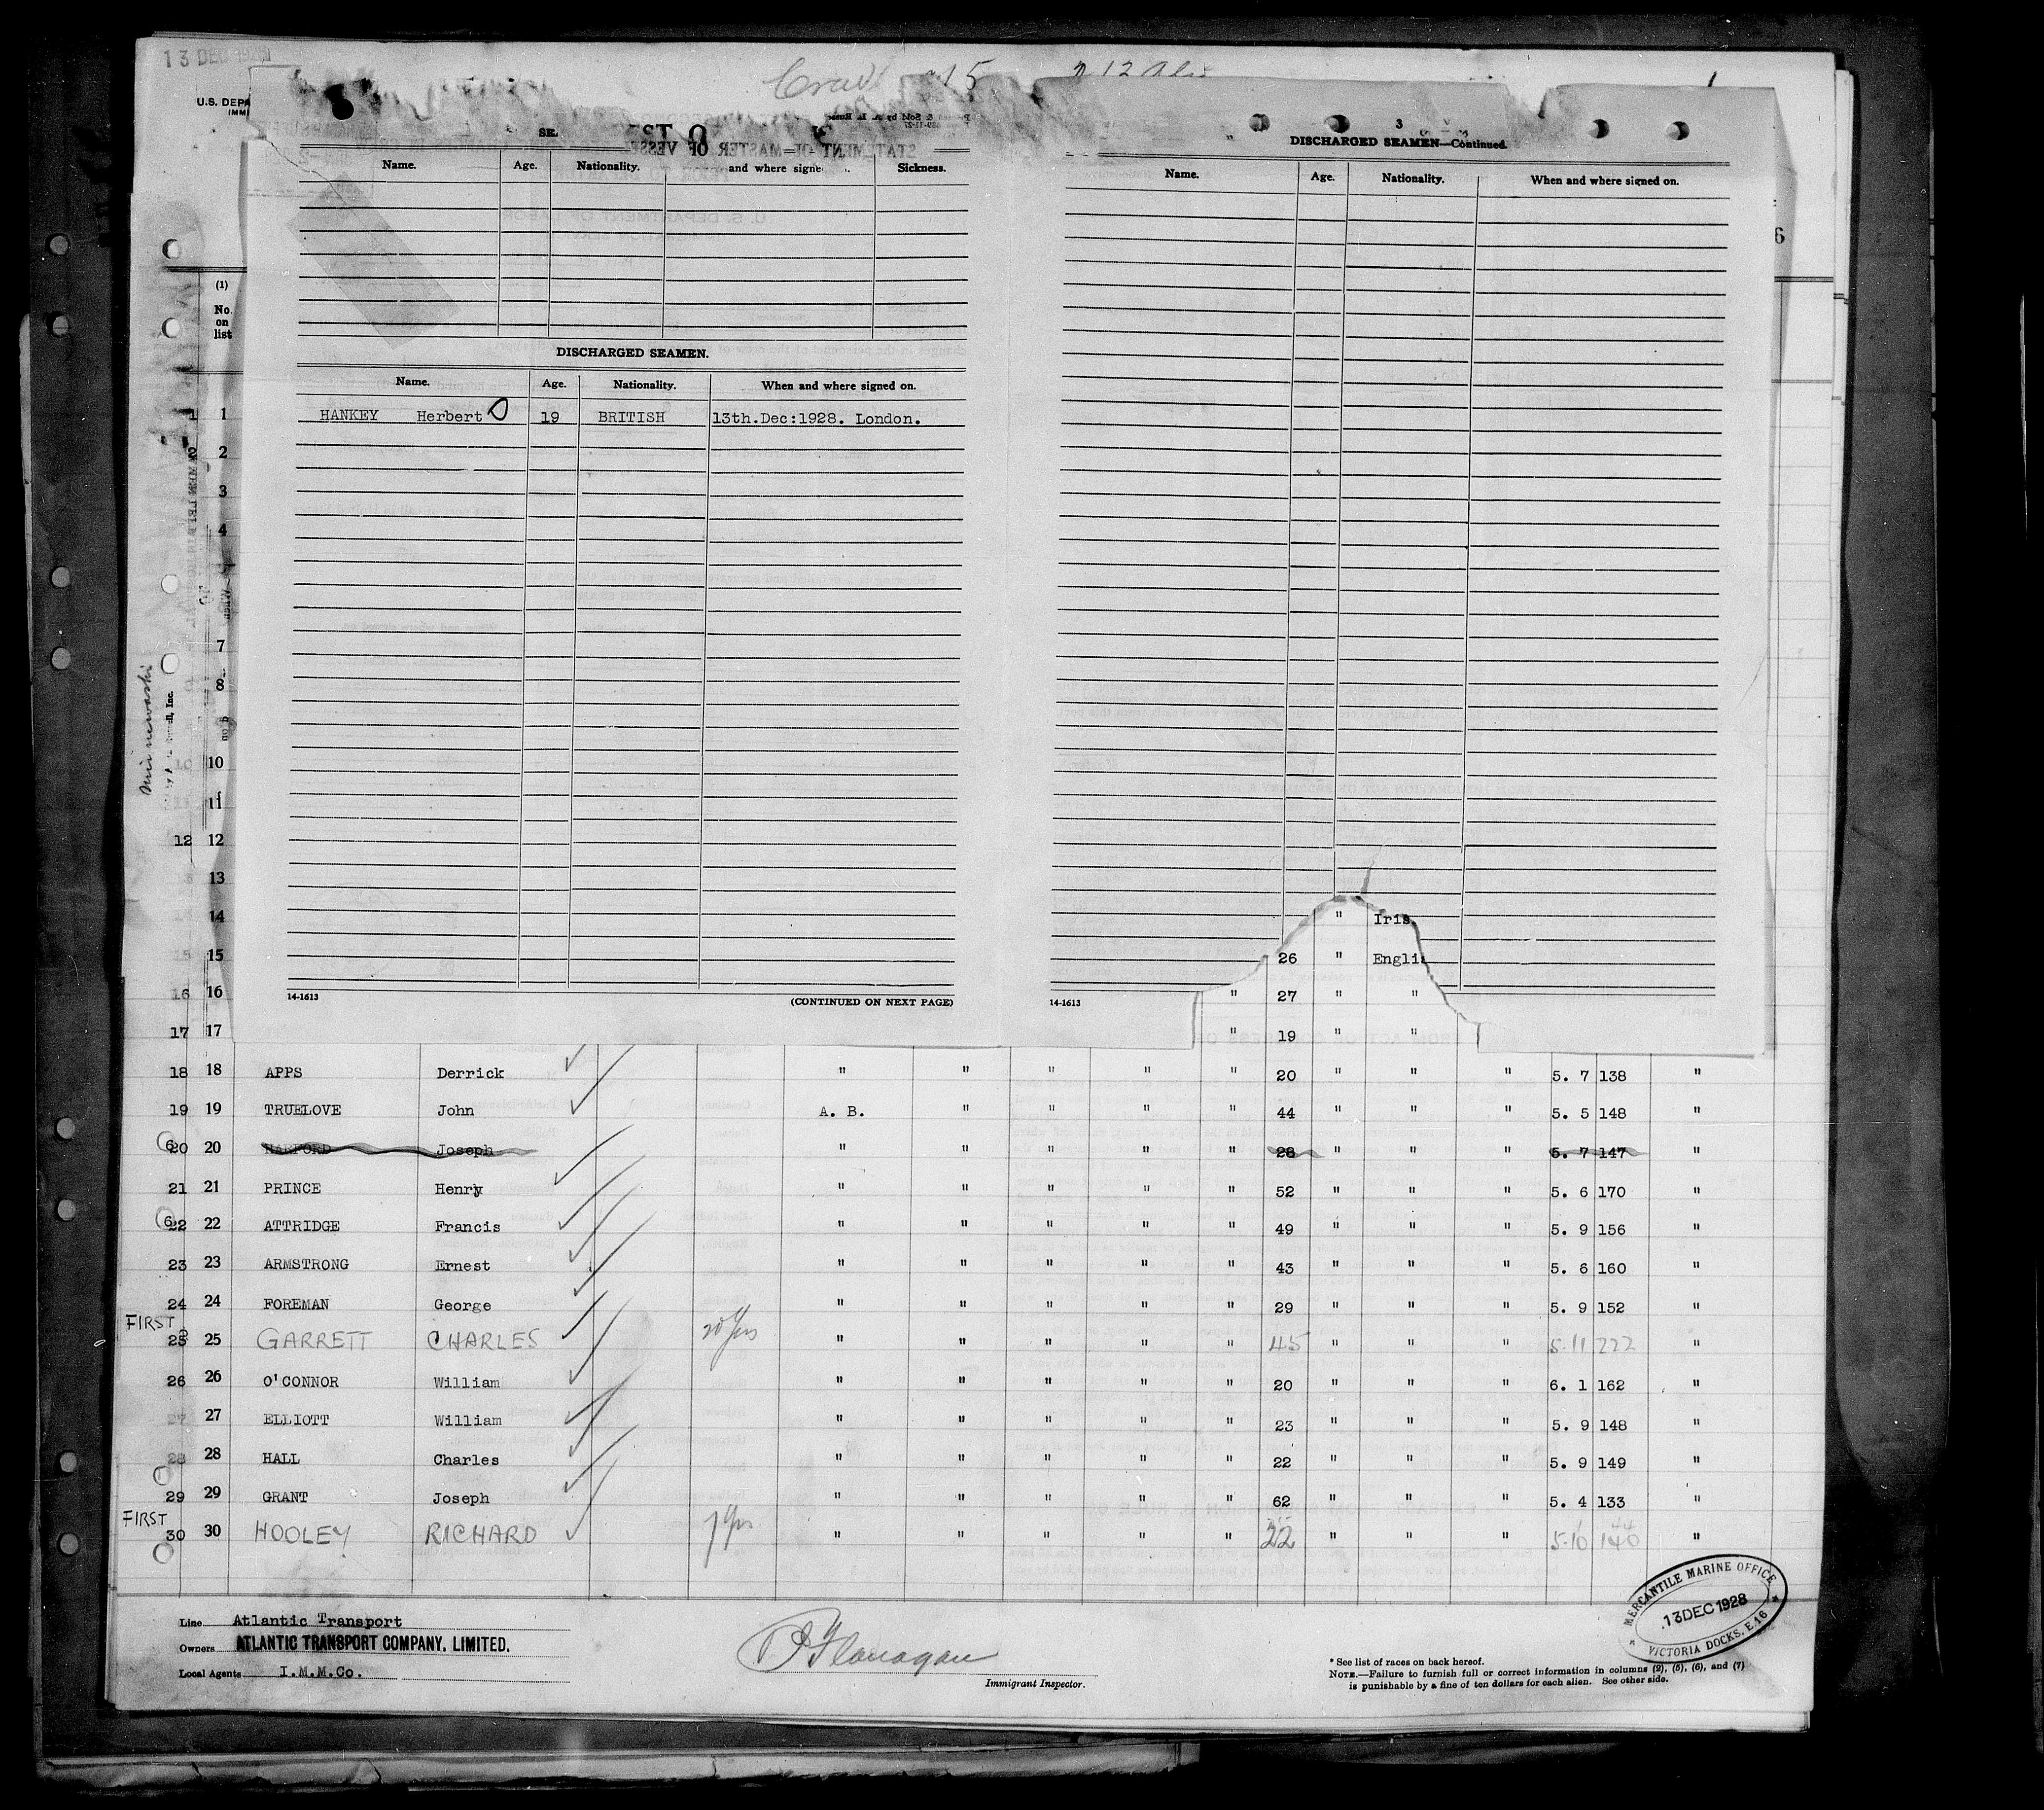 13 DEC 1928
U.S. DEPA
IMMI
15
12
1
DISCHARGED SEAMEN—Continued.
3
Name. Age. Nationality. and where signe Sickness.
Name. Age. Nationality. When and where signed on.
6
(1)
No.
on
list
DISCHARGED SEAMEN.
Name. Age. Nationality. When and where signed on.
HANKEY Herbert 19 BRITISH 13th.Dec:1928. London.
1 1
2
3
4
7
8
10
11
12 12
13
14 " Iris
15 15 26 " Engli
16 16 " 27 " "
14-1613 (CONTINUED ON NEXT PAGE) 14-1613
17 17 " 19 " "
18 18 APPS Derrick " " " " " 20 " " " 5. 7 138 "
19 19 TRUELOVE John A. B. " " " " 44 " " " 5. 5 148 "
20 20 HARFORD Joseph " " " " " 28 " " " 5. 7 147 "
21 21 PRINCE Henry " " " " " 52 " " " 5. 6 170 "
22 22 ATTRIDGE Francis " " " " " 49 " " " 5. 9 156 "
23 23 ARMSTRONG Ernest " " " " " 43 " " " 5. 6 160 "
24 24 FOREMAN George " " " " " 29 " " " 5. 9 152 "
FIRST
25 25 GARRETT CHARLES 20 yrs " " " " " 45 " " " 5.11 222 "
26 26 O'CONNOR William " " " " " 20 " " " 6. 1 162 "
27 27 ELLIOTT William " " " " " 23 " " " 5. 9 148 "
28 28 HALL Charles " " " " " 22 " " " 5. 9 149 "
29 29 GRANT Joseph " " " " " 62 " " " 5. 4 133 "
FIRST
30 30 HOOLEY RICHARD 7 yrs " " " " " 22 " " " 5.10 140 "
Line Atlantic Transport
Owners ATLANTIC TRANSPORT COMPANY, LIMITED.
Local Agents I.M.M.Co.
Flanagan
Immigrant Inspector.
MERCANTILE MARINE OFFICE
13 DEC 1928
VICTORIA DOCKS, E.16
* See list of races on back hereof.
NOTE.—Failure to furnish full or correct information in columns (2), (5), (6), and (7)
is punishable by a fine of ten dollars for each alien. See other side.